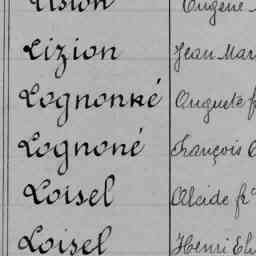 Lision Eugène
Lizion Jean Mar
Lognonné Auguste f
Lognoné François
Loisel Alcide fr
Loisel Henri